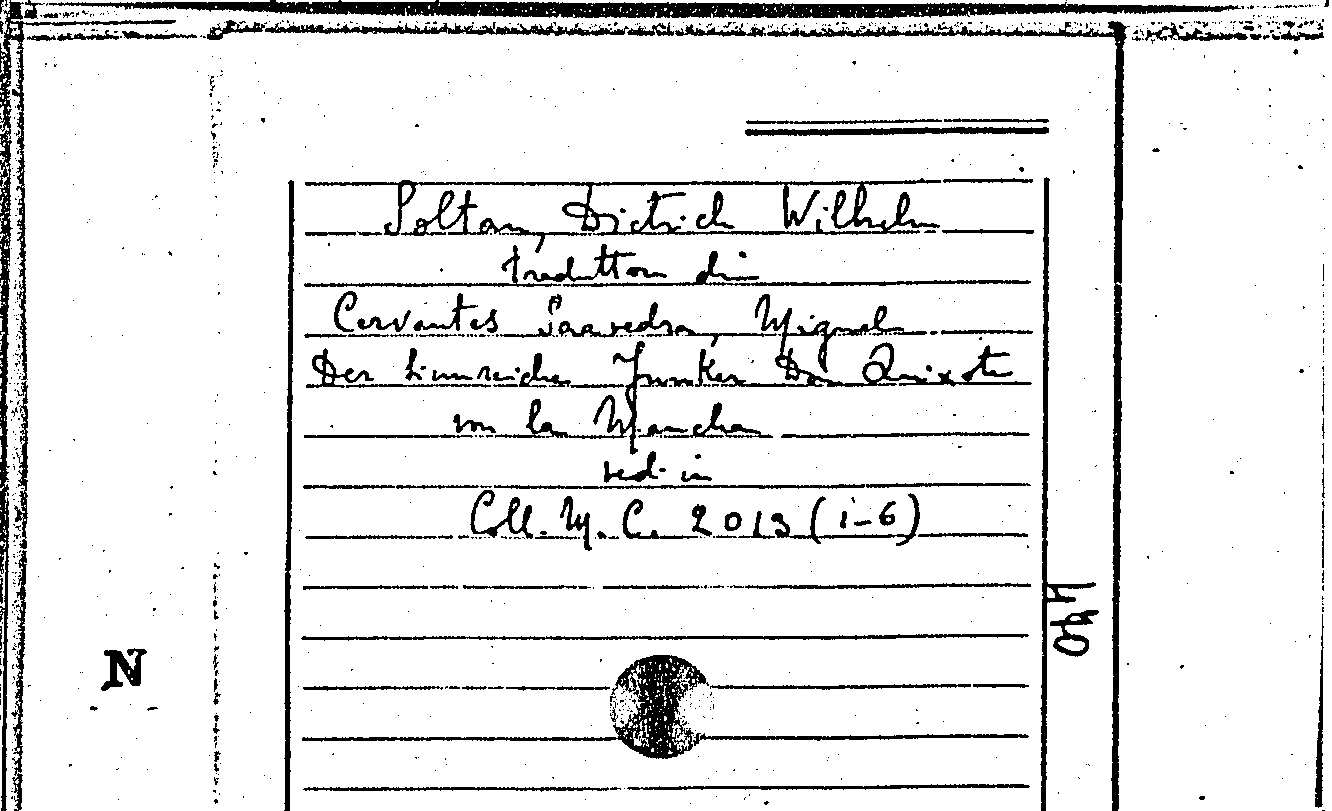 Soltau, Dietrich Wilhelm
traduttore di
Cervantes Saavedra, Miguel
Der sinnreiche Junker Don Quixote
von la Mancha
ved. in
Coll. M. C. 2013 (1-6)
N